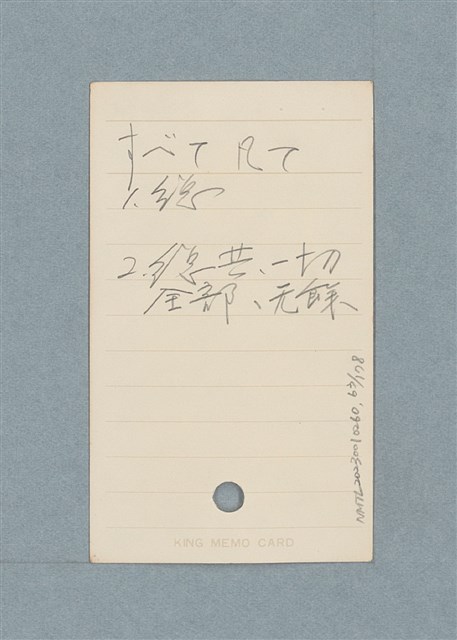 すべて 凡て
1. 總
2. 總共、一切
全部、无餘
KING MEMO CARD